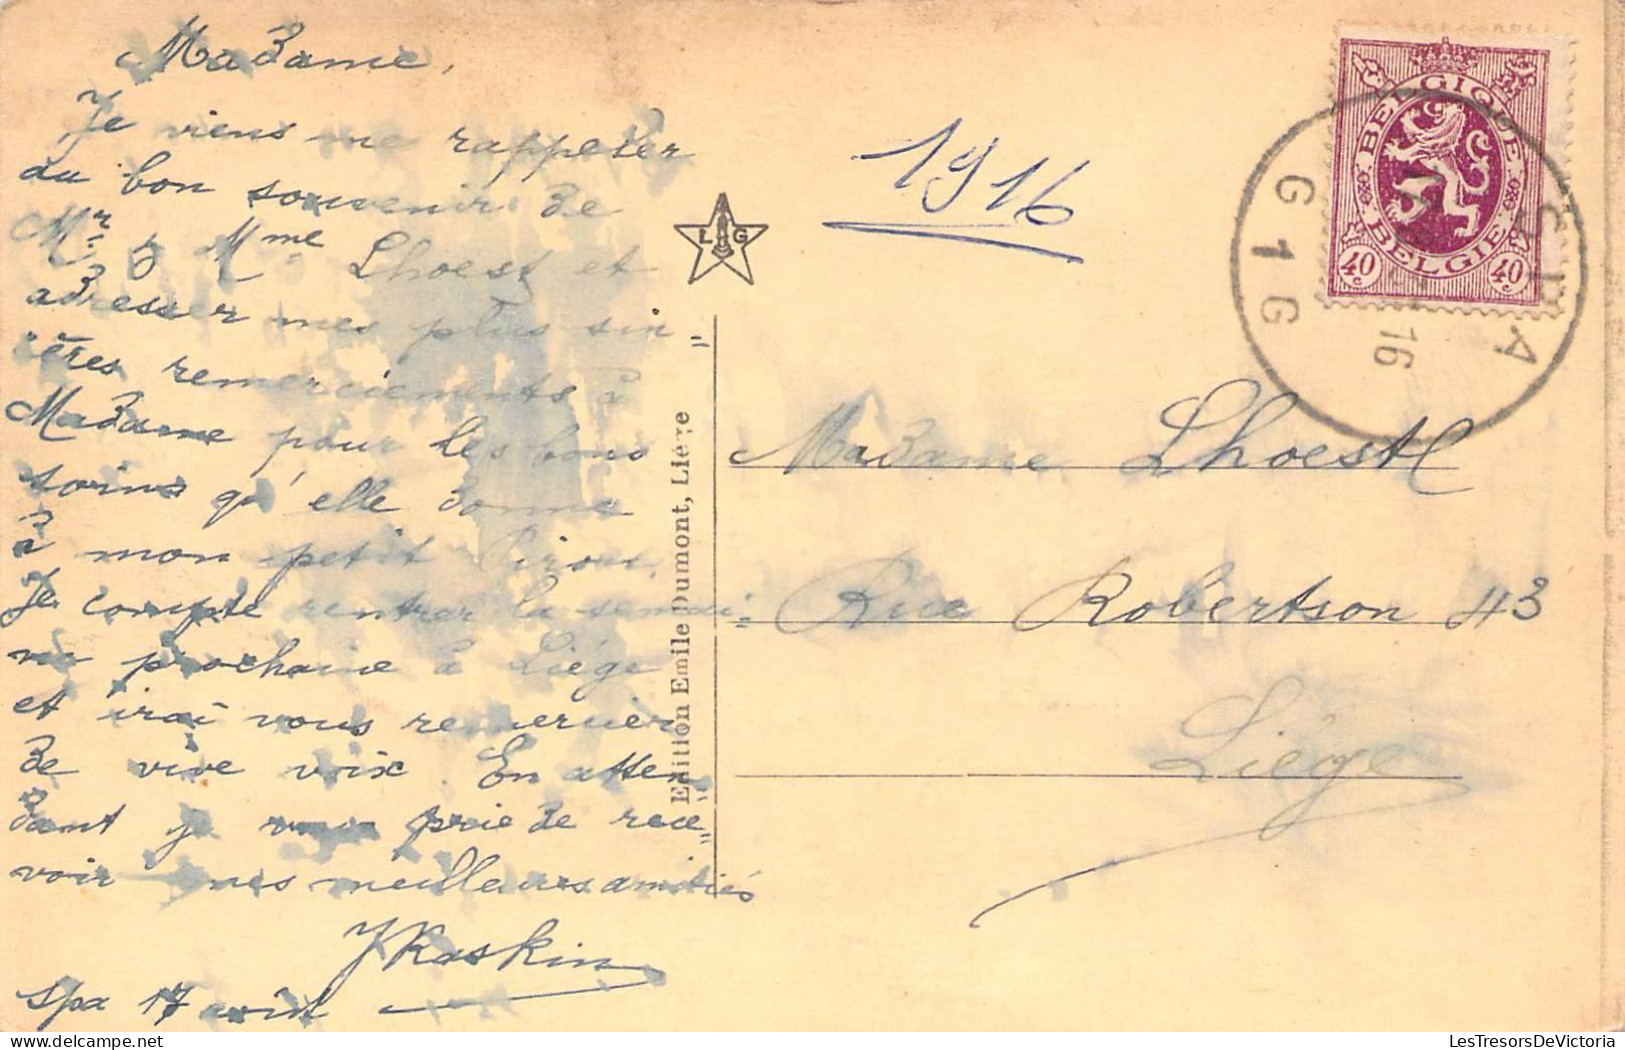 Madame,
Je viens me rappeler
au bon souvenir de
Mr & Mme Lhoest et
adresser mes plus sin=
cères remerciements à
Madame pour les bons
soins qu'elle donne
à mon petit
Je compte rentrer la semai=
ne prochaine à Liége
et irai vous remercier
de vive voix. En atten=
dant je vous prie de rece=
voir mes meilleures amitiés
J Raskin
Spa 17 août
L G
Edition Emile Dumont, Liége
1916
BELGIQUE
BELGIË
40c 40c
SPA
16
G1G
Madame Lhoest
Rue Robertson 43
Liége
LesTresorsDeVictoria.com